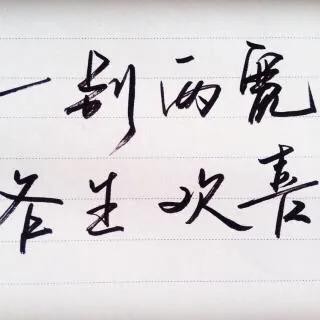 一别两宽
各生欢喜